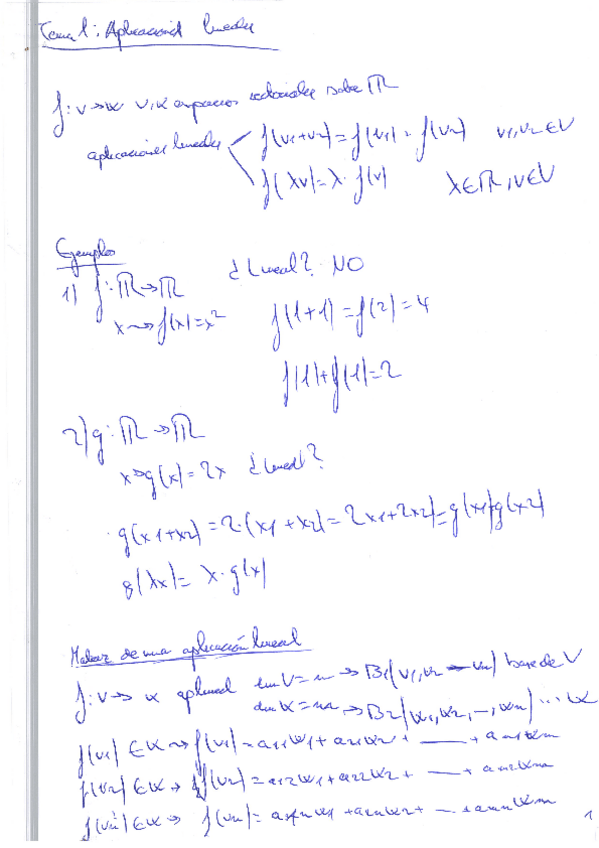 Tema 1: Aplicaciones lineales
f: V→W V,W espacios vectoriales sobre ℝ
aplicaciones lineales
f(v1+v2)=f(v1)+f(v2) v1,v2∈V
f(λv)=λ·f(v) λ∈ℝ, v∈V
Ejemplos
1) f:ℝ→ℝ ¿Lineal? NO
x⇝f(x)=x² f(1+1)=f(2)=4
f(1)+f(1)=2
2) g:ℝ→ℝ
x→g(x)=2x ¿Lineal?
g(x1+x2)=2·(x1+x2)=2x1+2x2=g(x1)+g(x2)
g(λx)=λ·g(x)
Matriz de una aplicación lineal
f: V→W ap lineal dim V=n→B1(v1,v2 — vn) base de V
dim W=m→B2(w1,w2,—,wm) ... W
f(v1)∈W⇝f(v1)=a11w1+a21w2+ — +am1wm
f(v2)∈W→f(v2)=a12w1+a22w2+ — +am2wm
f(vn)∈W→f(vn)=a1nw1+a2nw2+ — +amnwm
1